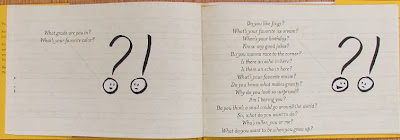 What grade are you in?
What's your favorite color?
?!
Do you like frogs?
What's your favorite ice cream?
When's your birthday?
Know any good jokes?
Do you wanna race to the corner?
Is there an echo in here?
Is there an echo in here?
What's your favorite movie?
Do you know what makes gravity?
Why do you look so surprised?
Am I boring you?
Do you think a snail could go around the world?
So, what do you want to do?
Who's taller, you or me?
What do you want to be when you grow up?
?!